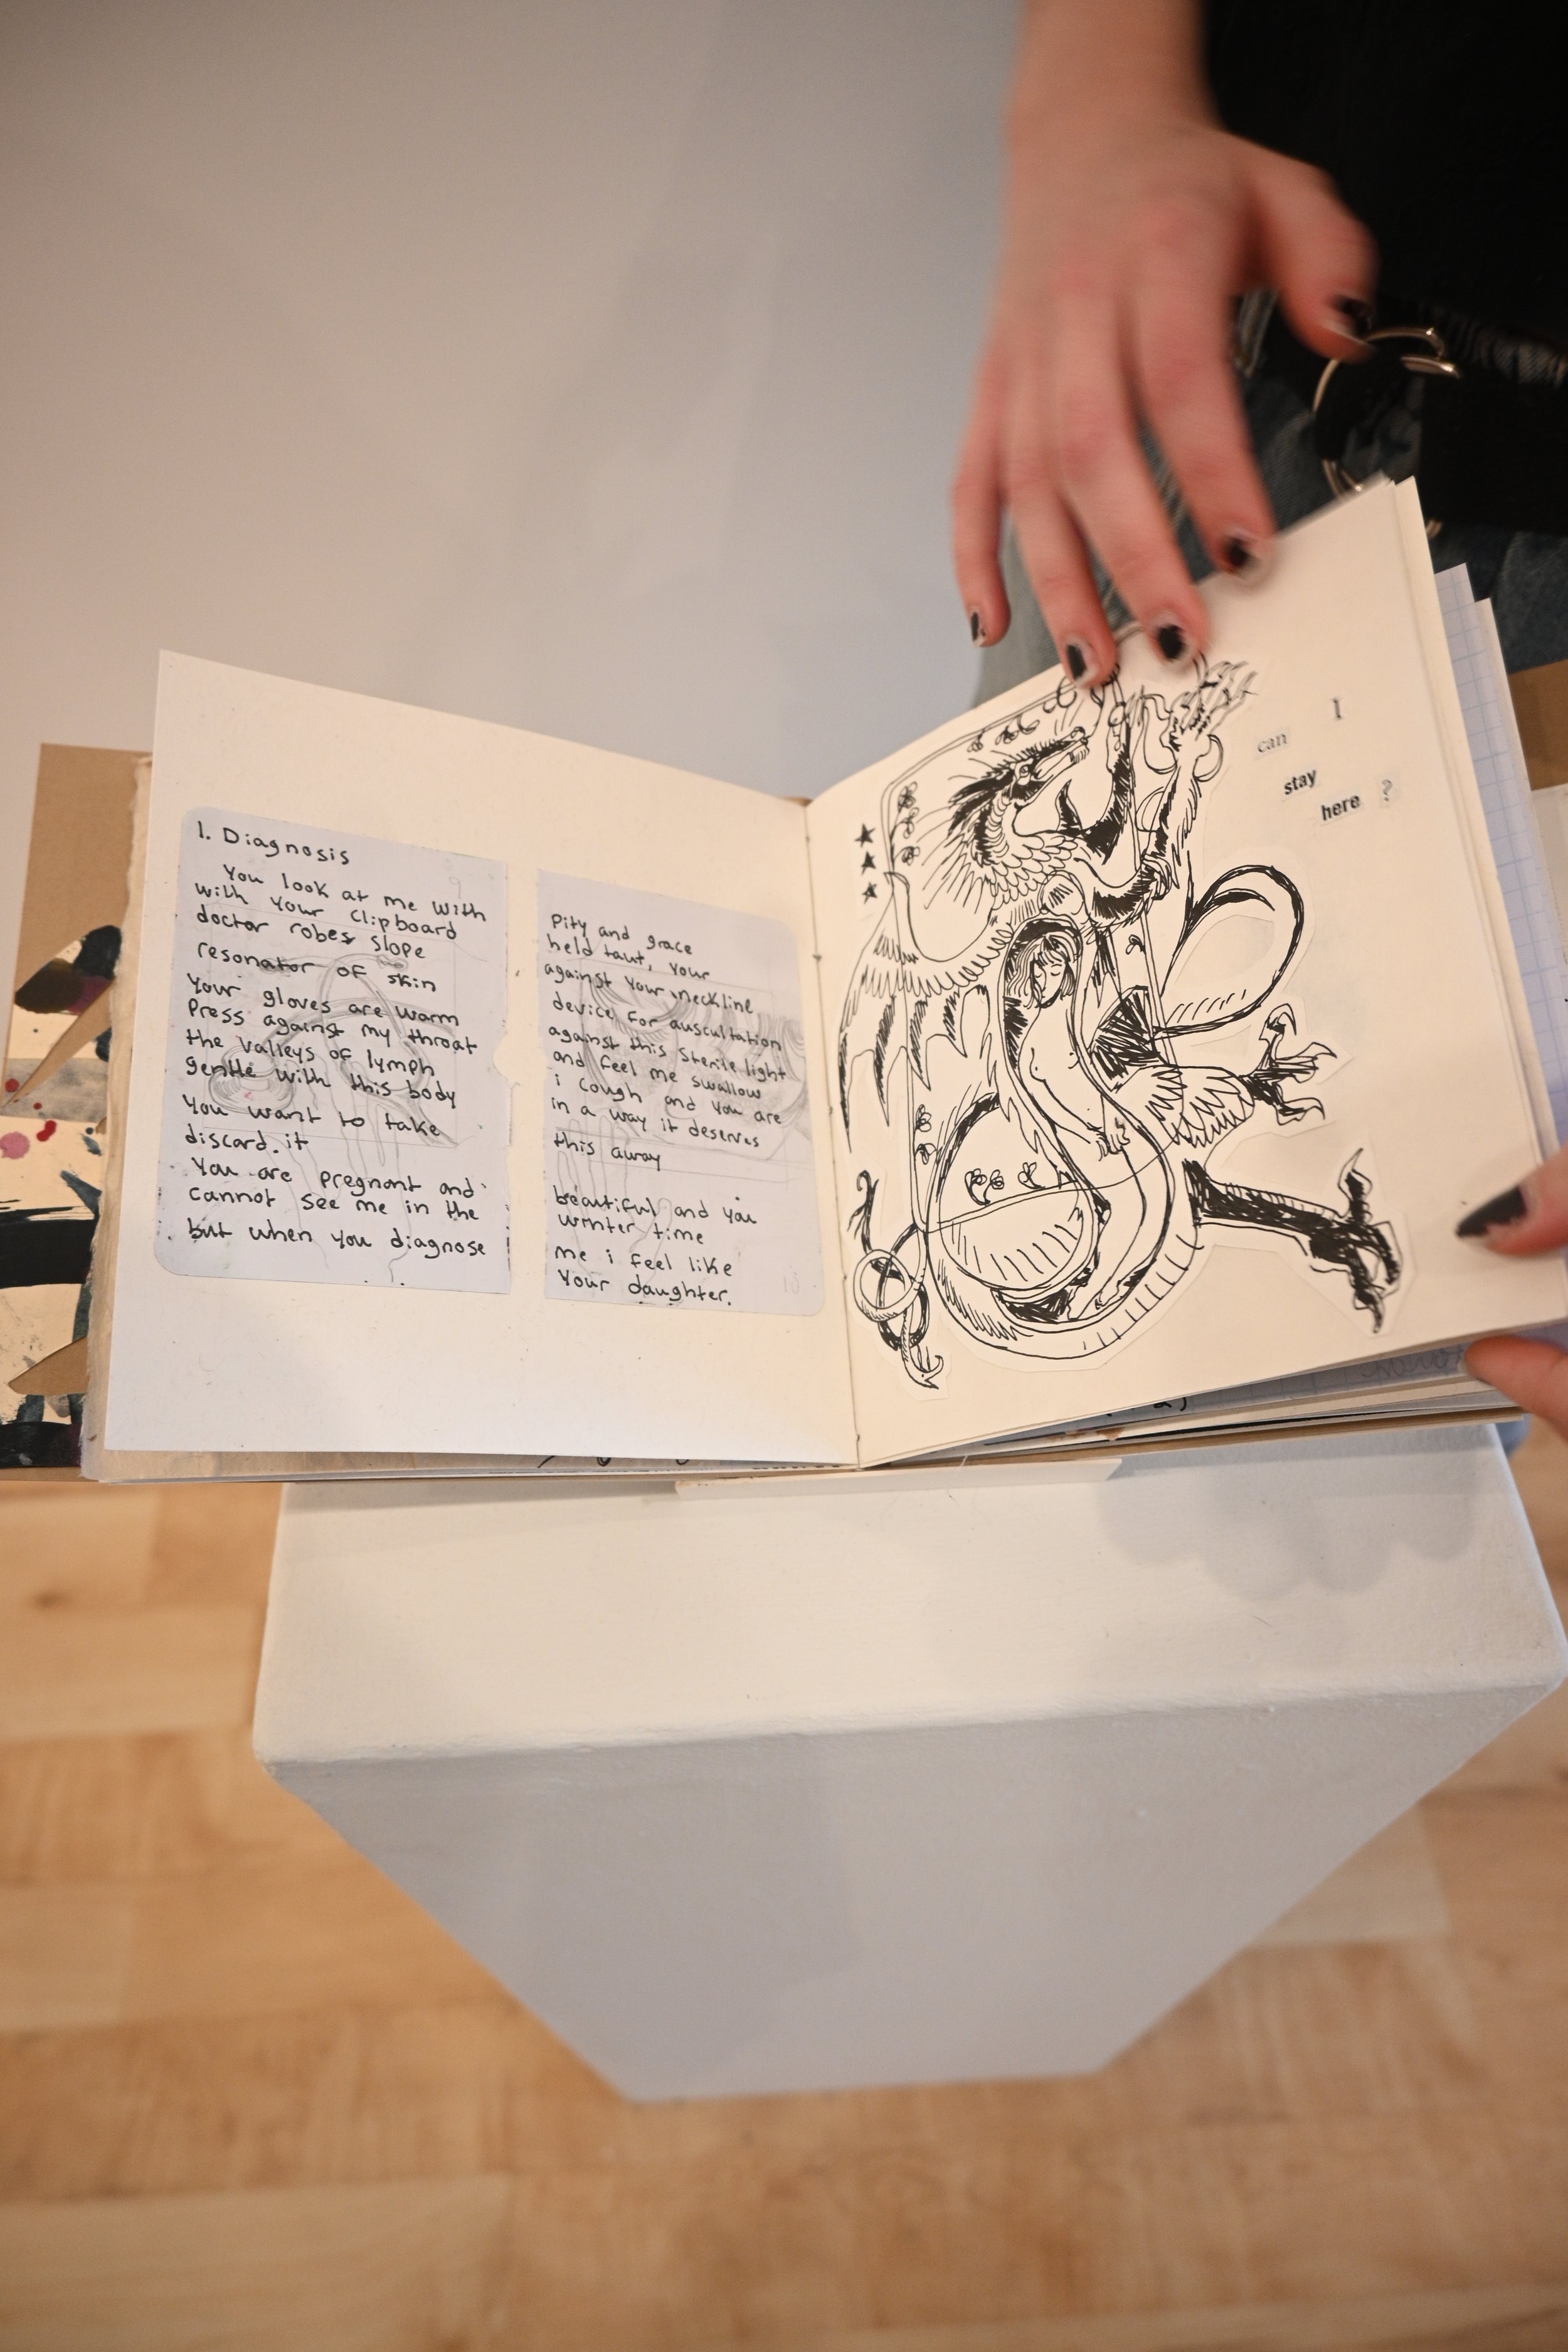 1. Diagnosis
You look at me with
with your clipboard
doctor robes slope
resonator of skin
Your gloves are warm
Press against my throat
the valleys of lymph
gentle with this body
You want to take
discard. it
You are pregnant and
cannot see me in the
but when you diagnose
Pity and grace
held taut, your
against your neckline
device for auscultation
against this sterile light
and feel me swallow
i cough and you are
in a way it deserves
this away
beautiful and you
winter time
me i feel like
Your daughter.
I
can
stay
here ?